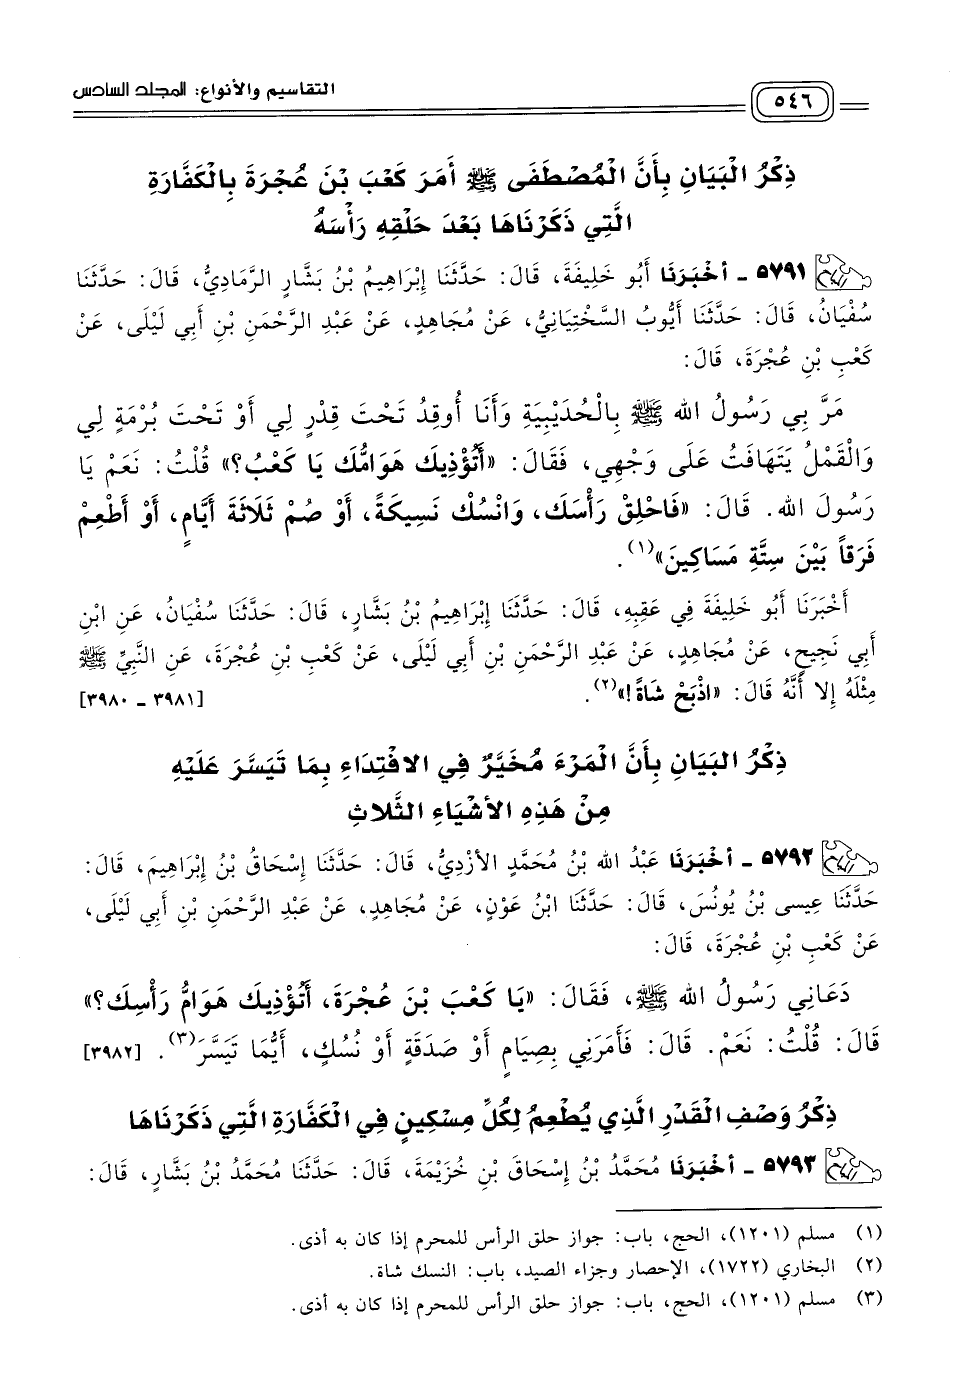 ٥٤٦ التقاسيم والأنواع: المجلد السادس
ذِكْرُ الْبَيَانِ بِأَنَّ الْمُصْطَفَى ﷺ أَمَرَ كَعْبَ بْنَ عُجْرَةَ بِالْكَفَّارَةِ
الَّتِي ذَكَرْنَاهَا بَعْدَ حَلْقِهِ رَأْسَهُ
٥٧٩١ ـ أَخْبَرَنَا أَبُو خَلِيفَةَ، قَالَ: حَدَّثَنَا إِبْرَاهِيمُ بْنُ بَشَّارٍ الرَّمَادِيُّ، قَالَ: حَدَّثَنَا
سُفْيَانُ، قَالَ: حَدَّثَنَا أَيُّوبُ السَّخْتِيَانِيُّ، عَنْ مُجَاهِدٍ، عَنْ عَبْدِ الرَّحْمَنِ بْنِ أَبِي لَيْلَى، عَنْ
كَعْبِ بْنِ عُجْرَةَ، قَالَ:
مَرَّ بِي رَسُولُ الله ﷺ بِالْحُدَيْبِيَةِ وَأَنَا أُوقِدُ تَحْتَ قِدْرٍ لِي أَوْ تَحْتَ بُرْمَةٍ لِي
وَالْقَمْلُ يَتَهَافَتُ عَلَى وَجْهِي، فَقَالَ: «أَتُؤْذِيكَ هَوَامُّكَ يَا كَعْبُ؟» قُلْتُ: نَعَمْ يَا
رَسُولَ الله. قَالَ: «فَاحْلِقْ رَأْسَكَ، وَانْسُكْ نَسِيكَةً، أَوْ صُمْ ثَلَاثَةَ أَيَّامٍ، أَوْ أَطْعِمْ
فَرَقاً بَيْنَ سِتَّةِ مَسَاكِينَ»(١).
أَخْبَرَنَا أَبُو خَلِيفَةَ فِي عَقِبِهِ، قَالَ: حَدَّثَنَا إِبْرَاهِيمُ بْنُ بَشَّارٍ، قَالَ: حَدَّثَنَا سُفْيَانُ، عَنِ ابْنِ
أَبِي نَجِيحٍ، عَنْ مُجَاهِدٍ، عَنْ عَبْدِ الرَّحْمَنِ بْنِ أَبِي لَيْلَى، عَنْ كَعْبِ بْنِ عُجْرَةَ، عَنِ النَّبِيِّ ﷺ
مِثْلَهُ إِلا أَنَّهُ قَالَ: «اذْبَحْ شَاةً!»(٢). [٣٩٨١ ـ ٣٩٨٠]
ذِكْرُ البَيَانِ بِأَنَّ الْمَرْءَ مُخَيَّرٌ فِي الافْتِدَاءِ بِمَا تَيَسَّرَ عَلَيْهِ
مِنْ هَذِهِ الأَشْيَاءِ الثَّلاثِ
٥٧٩٢ ـ أَخْبَرَنَا عَبْدُ الله بْنُ مُحَمَّدٍ الأَزْدِيُّ، قَالَ: حَدَّثَنَا إِسْحَاقُ بْنُ إِبْرَاهِيمَ، قَالَ:
حَدَّثَنَا عِيسى بْنُ يُونُسَ، قَالَ: حَدَّثَنَا ابْنُ عَوْنٍ، عَنْ مُجَاهِدٍ، عَنْ عَبْدِ الرَّحْمَنِ بْنِ أَبِي لَيْلَى،
عَنْ كَعْبِ بْنِ عُجْرَةَ، قَالَ:
دَعَانِي رَسُولُ الله ﷺ، فَقَالَ: «يَا كَعْبَ بْنَ عُجْرَةَ، أَتُؤْذِيكَ هَوَامُّ رَأْسِكَ؟»
قَالَ: قُلْتُ: نَعَمْ. قَالَ: فَأَمَرَنِي بِصِيَامٍ أَوْ صَدَقَةٍ أَوْ نُسُكٍ، أَيُّمَا تَيَسَّرَ(٣). [٣٩٨٢]
ذِكْرُ وَصْفِ الْقَدْرِ الَّذِي يُطْعِمُ لِكُلِّ مِسْكِينٍ فِي الْكَفَّارَةِ الَّتِي ذَكَرْنَاهَا
٥٧٩٣ ـ أَخْبَرَنَا مُحَمَّدُ بْنُ إِسْحَاقَ بْنِ خُزَيْمَةَ، قَالَ: حَدَّثَنَا مُحَمَّدُ بْنُ بَشَّارٍ، قَالَ:
(١) مسلم (١٢٠١)، الحج، باب: جواز حلق الرأس للمحرم إذا كان به أذى.
(٢) البخاري (١٧٢٢)، الإحصار وجزاء الصيد، باب: النسك شاة.
(٣) مسلم (١٢٠١)، الحج، باب: جواز حلق الرأس للمحرم إذا كان به أذى.